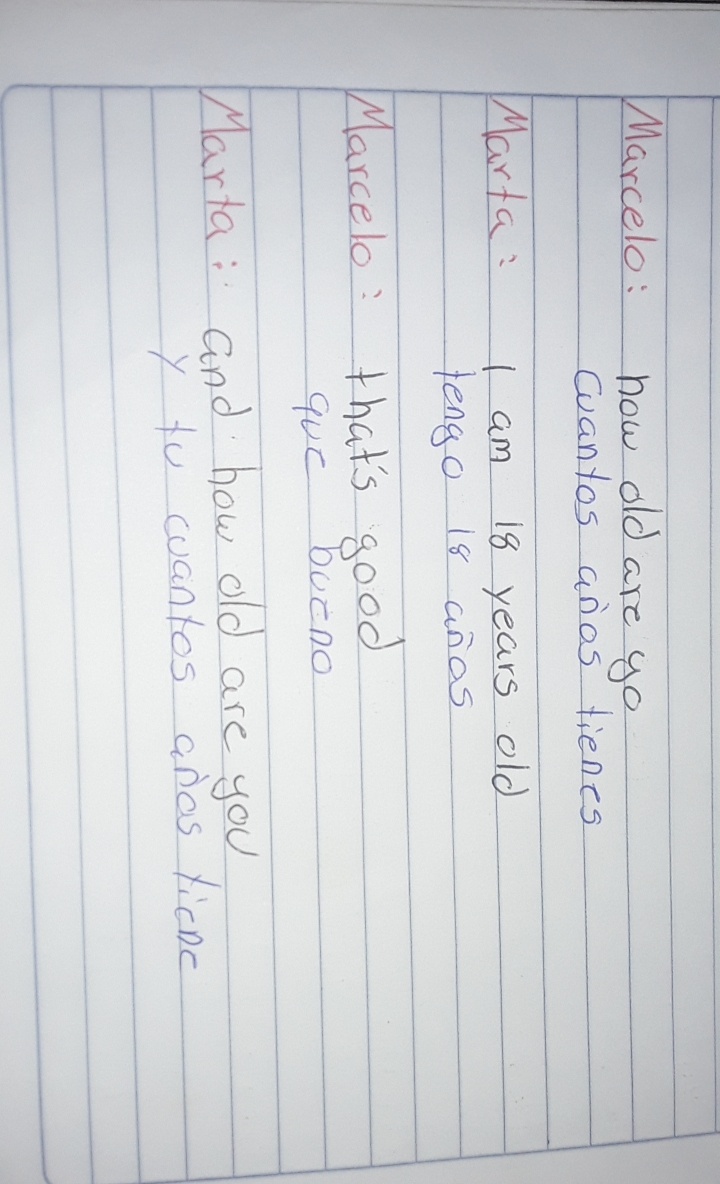 Marcelo: how old are yo
cuantos años tienes
Marta: I am 18 years old
tengo 18 años
Marcelo: that's good
que bueno
Marta: and how old are you
y tu cuantos años tiene